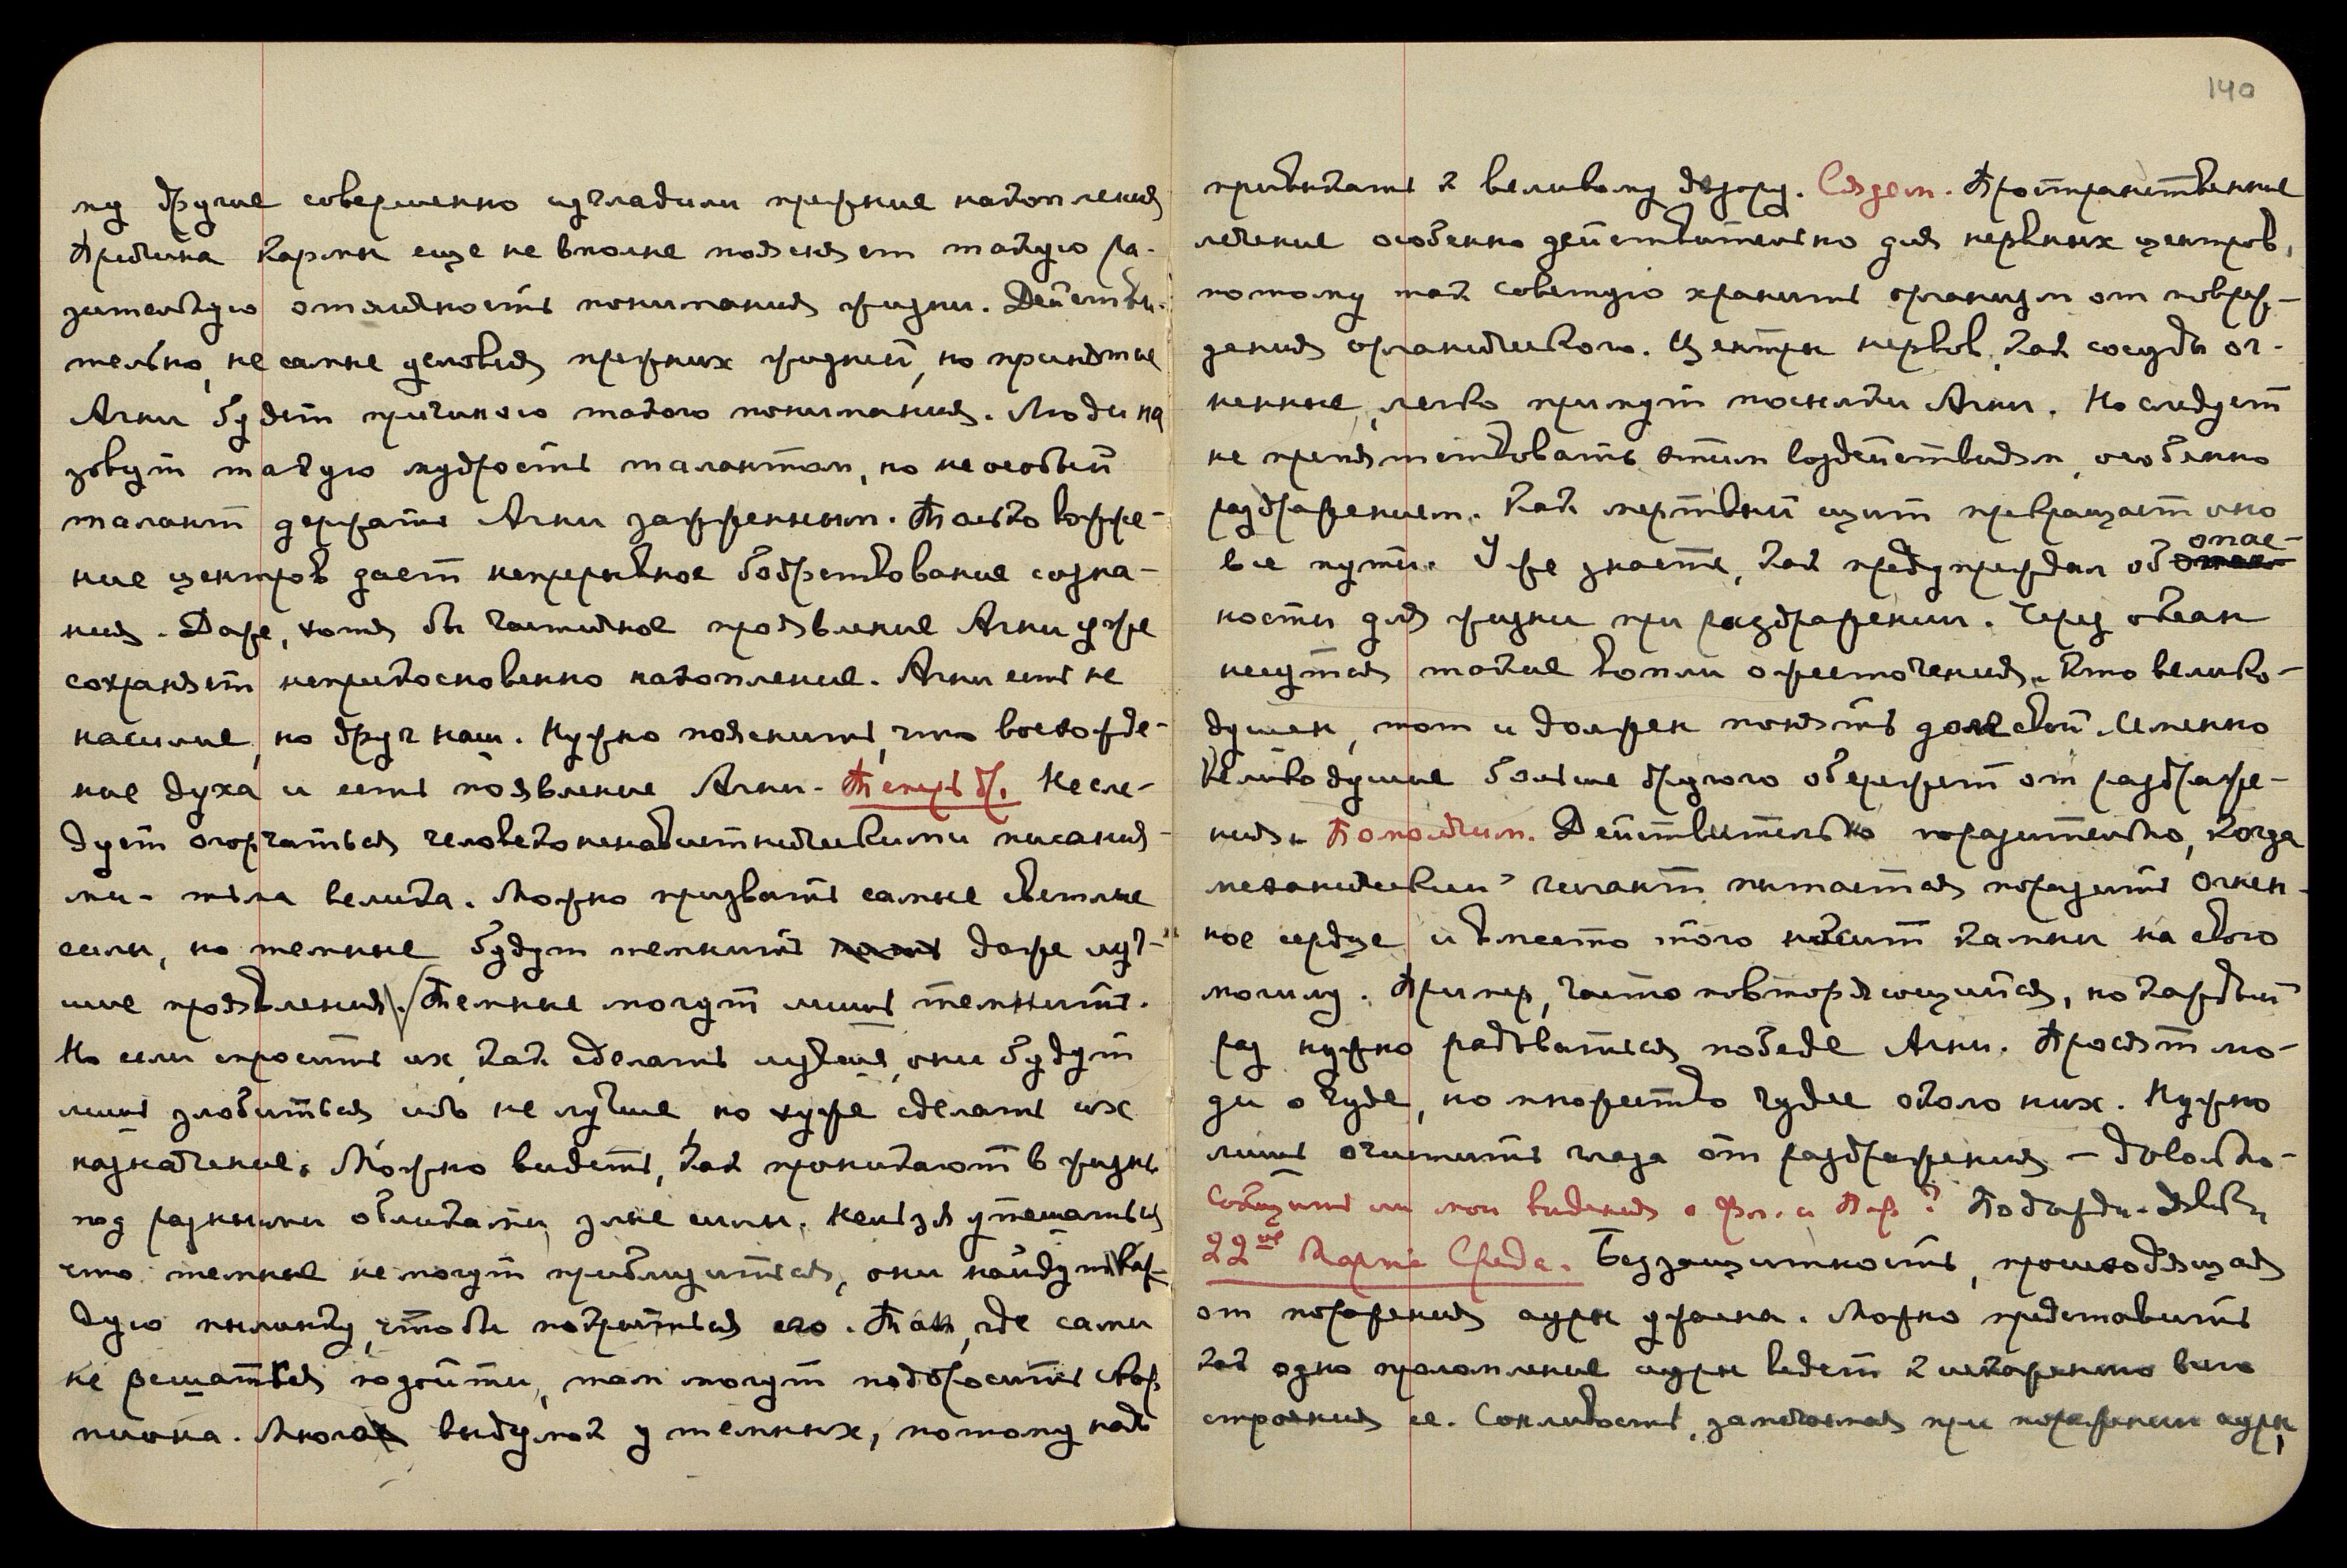 му другие совершенно изгладили прежние накопления
Причина Кармы еще не вполне поясняет такую ра-
зительную отличность понимания жизни. Действи-
тельно, не самые условия прежних жизней, но принятие
Агни будет причиною такого понимания. Люди на
зовут такую мудрость талантом, но не особый
талант держать Агни зажженным. Только возже-
ние центров дает непрерывное бодрствование созна-
ния. Даже, хотя бы частичное проявление Агни уже
сохраняет неприкосновенно накопление. Агни есть не
насилие, но друг наш. Нужно пояснить, что восхожде-
ние духа и есть появление Агни. Теперь др. Не сле-
дует огорчаться человеконенавистническими писания-
ми – тьма велика. Можно призвать самые светлые
силы, но темные будут темнить даже луч-
шие проявления. Темные могут лишь темнить.
Но если спросить их, как сделать лучше, они будут
лишь злобиться ибо не лучше, но хуже сделать их
назначение. Можно видеть, как проникают в жизнь
под разными обликами злые силы. Нельзя утешаться
что темные не могут приблизиться, они найдут каж-
дую пылинку, чтобы покрыться ею. Там, где сами
не решаться подойти, там могут подбросить скор
пиона. Много выдумок у темных, потому надо
140
привыкать к великому дозору. Сядем. Пространственные
лечение особенно действительно для нервных центров,
потому так советую хранить организм от повреж-
дения органического. Центры нервов, как сосуды ог-
ненные, легко примут посылки Агни. Но следует
не препятствовать этим воздействиям, особенно
раздражением. Как мертвый щит превращает оно
все пути. Уже знаете, как предупреждал об опас-
ности для жизни при раздражении. Через океан
несутся такие вопли ожесточения. Кто велико-
душен, тот и должен понять дом свой. Именно
Великодушие больше другого обережет от раздраже-
ния. Помолчим. Действительно поразительно, когда
механический гигант пытается поразить огнен-
ное сердце и вместо того носит камни на свою
могилу. Пример, часто повторяющийся, но каждый
раз нужно радоваться победе Агни. Просят лю-
ди о чуде, но множество чудес около них. Нужно
лишь очистить глаза от раздражения – довольно.
Сообщить ли мои видения о Фл. и Пор? Подожди.
22ое Марта Среда. Беззащитность, происходящая
от поражения ауры ужасна. Можно представить
как одно преломление ауры ведет к искажению всего
строения ее. Сонливость, замечаемая при поражении ауры,